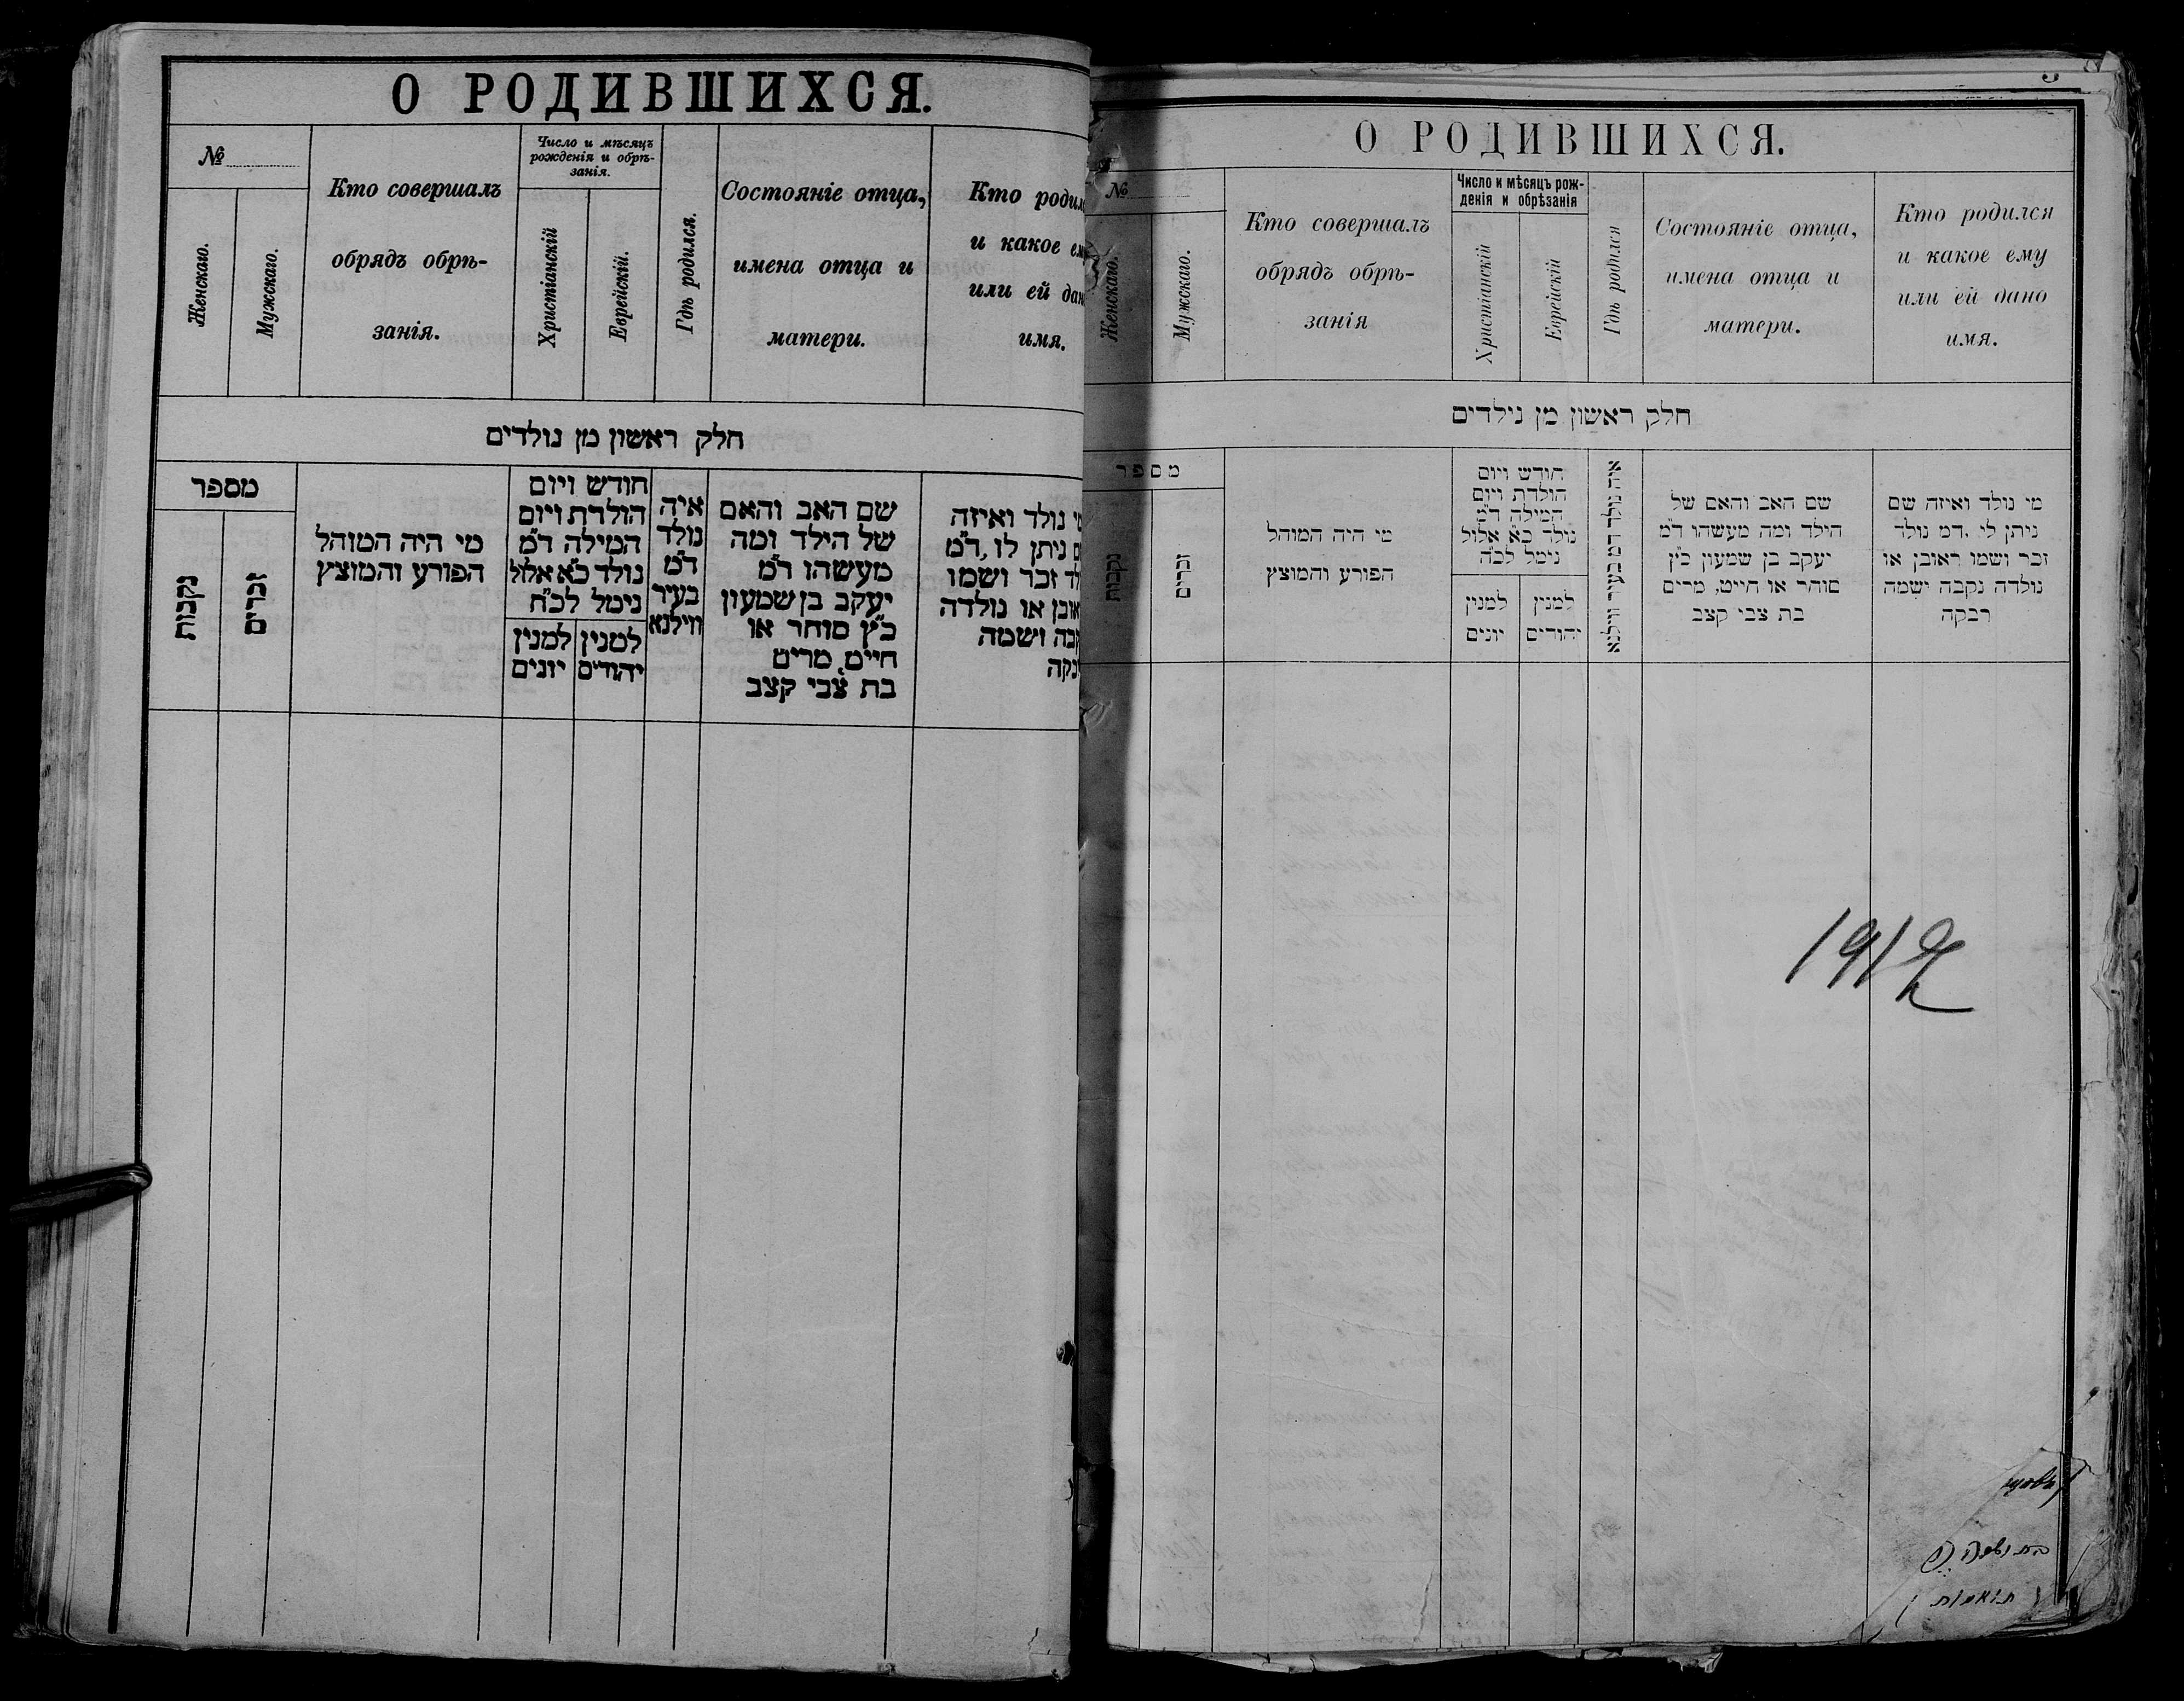 О РОДИВШИХСЯ.
№
Женскаго.
Мужскаго.
Кто совершалъ
обрядъ обрѣ-
занія.
Число и мѣсяцъ
рожденія и обрѣ-
занія.
Христіанскій
Еврейскій.
Гдѣ родился.
Состояніе отца,
имена отца и
матери.
Кто
и какое
или ей
имя.
חלק ראשון מן נולדים
מספר
נקבות
זכרים
מי היה המוהל
הפורע והמוצץ
חודש ויום
הולדת ויום
המילה ד"מ
נולד כ"א אלול
נימל לכ"ח
למנין
יהודים
למנין
יונים
איה
נולד
ד"מ
בעיר
ווילנא
שם האב והאם
של הילד ומה
מעשהו ד"מ
יעקב בן שמעון
כ"ץ סוחר או
חיים, מרים
בת צבי קצב
נולד ואיזה
ניתן לו, ד"מ
זכר ושמו
או נולדה
ושמה
О РОДИВШИХСЯ.
№
Женскаго.
Мужскаго.
Кто совершалъ
обрядъ обрѣ-
занія
Число и мѣсяцъ рож-
денія и обрѣзанія
Христіанскій
Еврейскій
Гдѣ родился
Состояніе отца,
имена отца и
матери.
Кто родился
и какое ему
или ей дано
имя.
חלק ראשון מן נילדים
מספר
נקבות
זכרים
מי היה המוהל
הפורע והמוצץ
חודש ויום
הולדת ויום
המילה ד"מ
נולד כ"א אלול
נימל לכ"ה
למנין
יהודים
למנין
יונים
איה נולד דמ בעיר ווילנא
שם האב והאם של
הילד ומה מעשהו ד"מ
יעקב בן שמעון כ"ץ
סוהר או חייט, מרים
בת צבי קצב
מי נולד ואיזה שם
ניתן לי .דמ נולד
זכר ושמו ראובן או
נולדה נקבה ישמה
רבקה